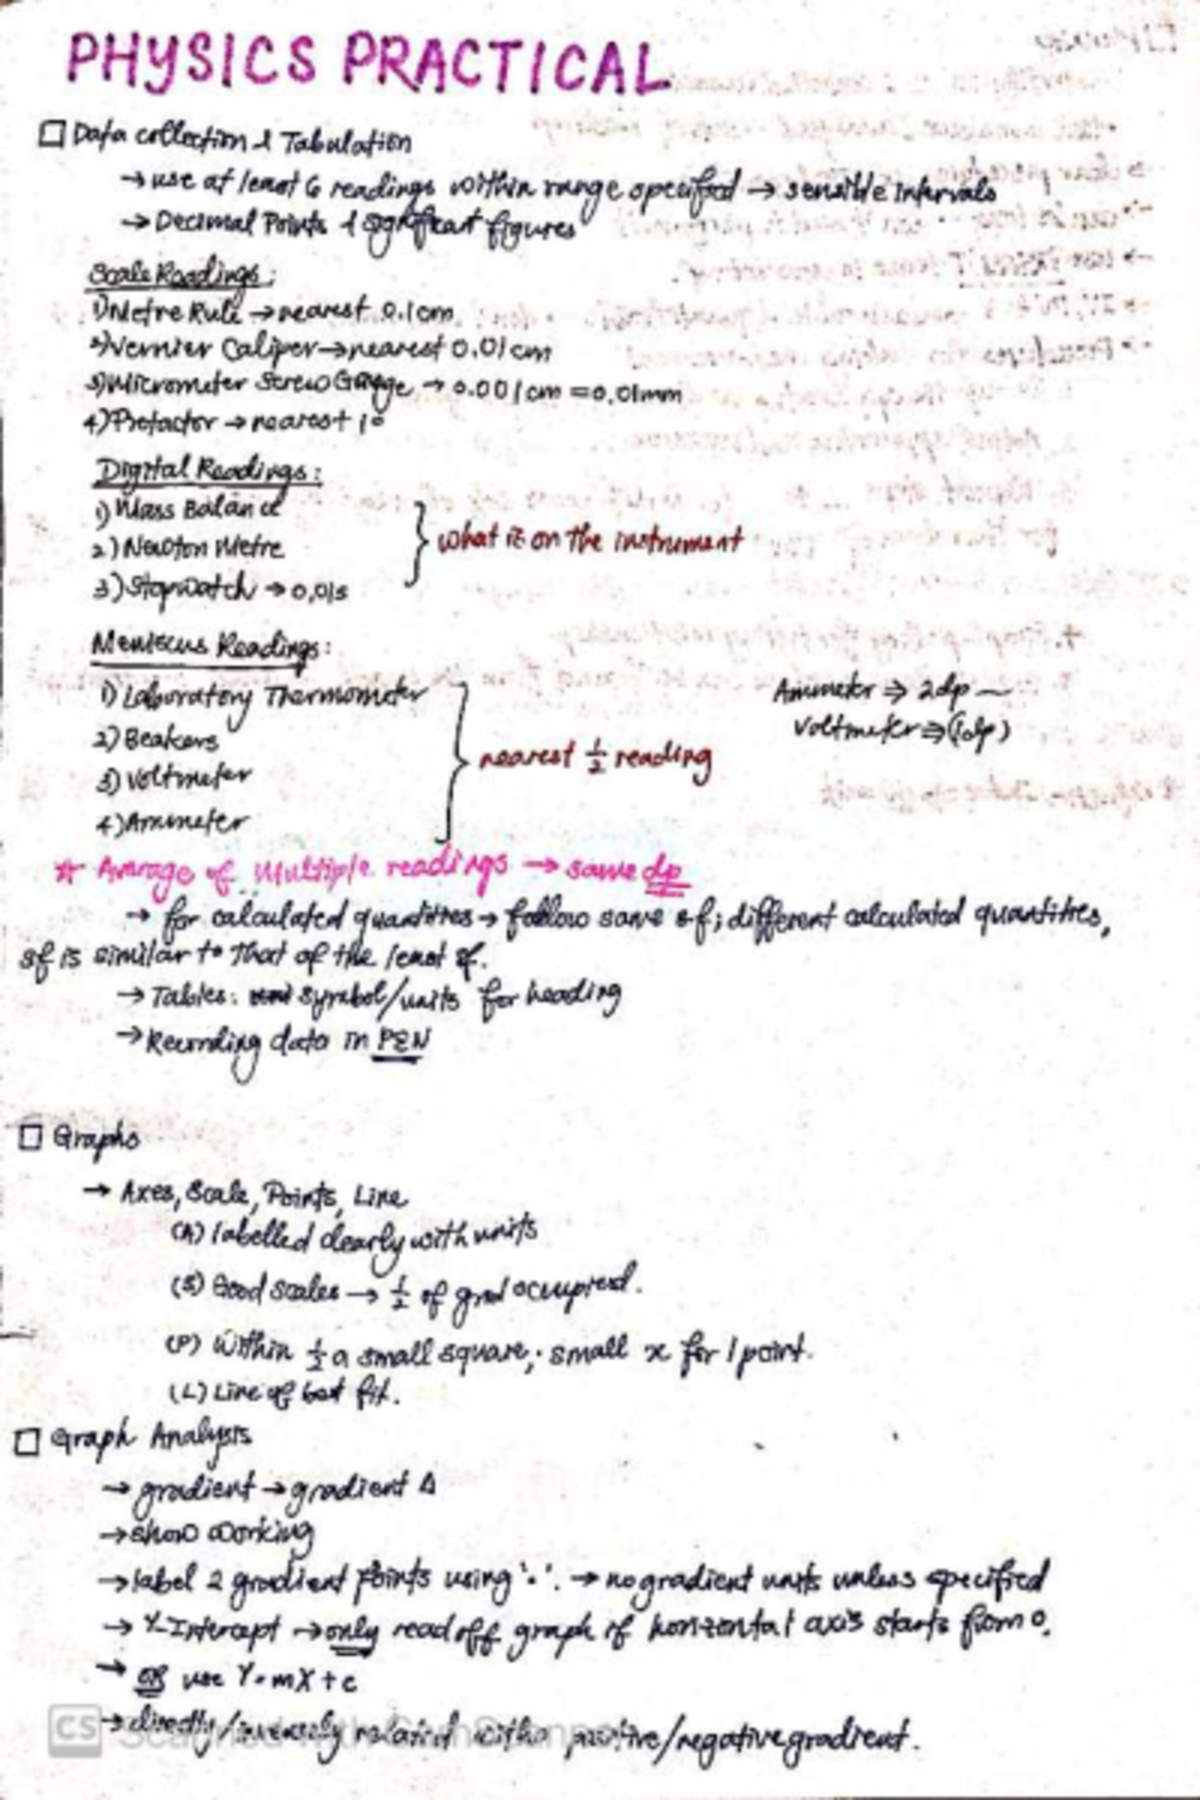 PHYSICS PRACTICAL
□ Data collection & Tabulation
→ use at least 6 readings within range specified → sensible intervals
→ Decimal Points & significant figures
Scale Readings:
1) Metre Rule → nearest 0.1cm
2) Vernier Caliper → nearest 0.01cm
3) Micrometer Screw Gauge → 0.001cm = 0.01mm
4) Protactor → nearest 1°
Digital Readings:
1) Mass Balance
2) Newton Metre
3) Stopwatch → 0.01s
what is on the instrument
Meniscus Readings:
1) Laboratory Thermometer
2) Beakers
3) Voltmeter
4) Ammeter
nearest 1/2 reading
Ammeter ⇒ 2dp
Voltmeter ⇒ (1dp)
☆ Average of Multiple readings → same dp
→ for calculated quantities → follow same sf; different calculated quantities,
sf is similar to that of the least sf.
→ Tables: symbol/units for heading
→ Recording data in PEN
□ Graphs
→ Axes, Scale, Points, Line
(A) labelled clearly with units
(S) Good scales → 1/2 of grid occupied.
(P) Within 1/2 a small square; small x for 1 point.
(L) Line of best fit.
□ Graph Analysis
→ gradient → gradient Δ
→ show working
→ label 2 gradient points using '·'. → no gradient units unless specified
→ Y-Intercept → only read off graph if horizontal axis starts from 0.
→ OR use Y=mX+c
→ directly/inversely related with a positive/negative gradient.
CS